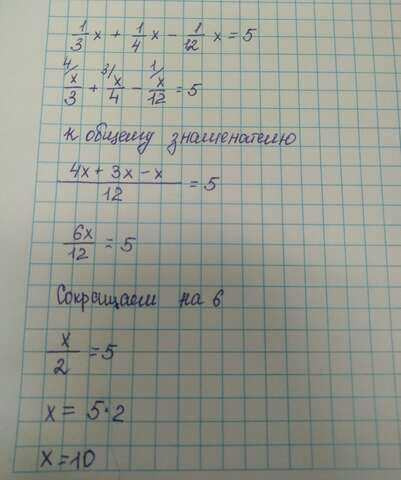 1/3 x + 1/4 x - 1/12 x = 5
4/ x/3 + 3/ x/4 - 1/ x/12 = 5
к общему знаменателю
4x + 3x - x / 12 = 5
6x/12 = 5
Сокращаем на 6
x/2 = 5
x = 5·2
x = 10